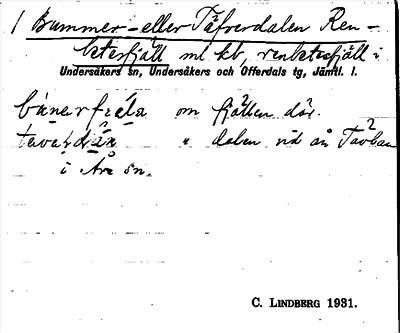 1 Bummer- eller Tåfverdalen Ren-
betesfjäll m kb, renbetesfjäll i
Undersåkers sn, Undersåkers och Offerdals tg, Jämtl. l.
om fjällen där.
" dalen vid ån Tåvban
i Åre sn.
C. LINDBERG 1931.